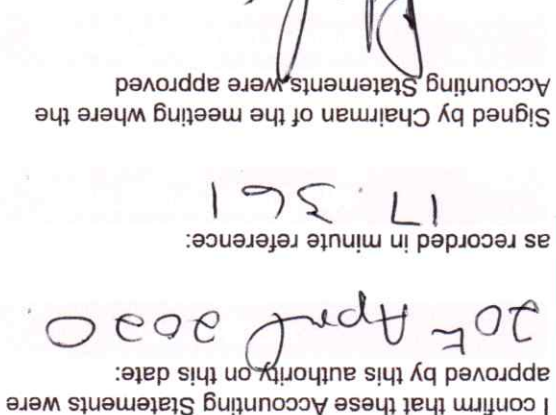 I confirm that these Accounting Statements were
approved by this authority on this date:
20th April 2020
as recorded in minute reference:
17.361
Signed by Chairman of the meeting where the
Accounting Statements were approved